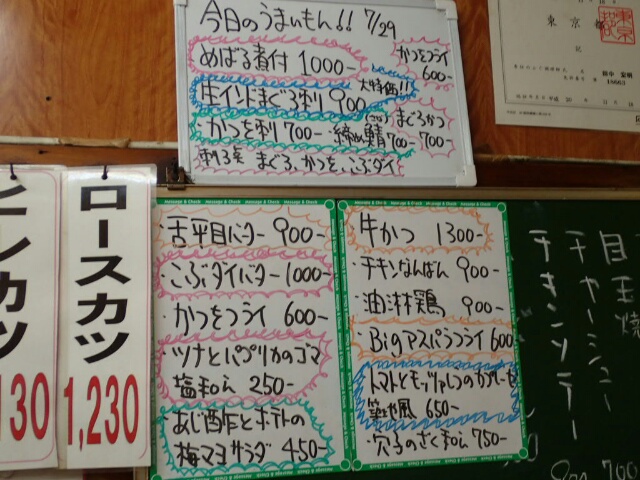 今日のうまいもん!! 7/29
めばる煮付 1000-
かつをフライ
600-
生インドまぐろ刺 900
大特価!!
かつを刺 700-
締め鯖 700-
まぐろかつ
700-
刺3点 まぐろ、かつを、こぶダイ
東京都
ヒレカツ
130
ロースカツ
1,230
Message & Check
・舌平目バター 900-
・こぶダイバター 1000-
・かつをフライ 600-
・ツナとパプリカのゴマ
塩和え 250-
・あじ酢〆とポテトの
梅マヨサラダ 450-
Message & Check
・牛かつ 1300-
・チキンなんばん 900-
・油淋鶏 900-
・Bigアスパラフライ 600
・トマトとモッツァレラのカプレーゼ
築地風 650-
・穴子のさくわら 750-
目玉焼
チャーシュー
チキンソテー